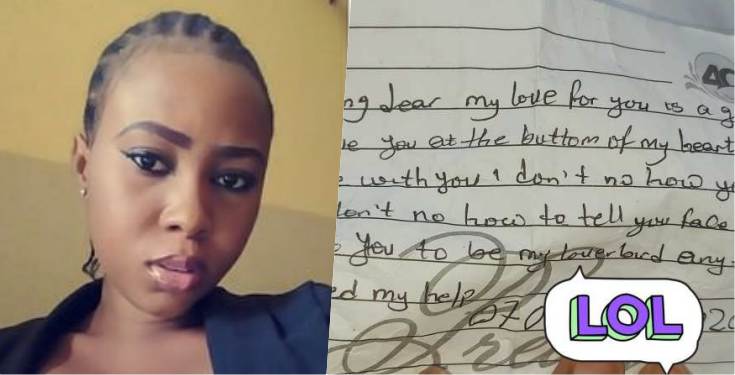 AC
ng dear my love for you is a g
ve you at the buttom of my heart
e with you I don't no how yo
don't no how to tell you face
e you to be my loverbird any-
ed my help
070
20
LOL